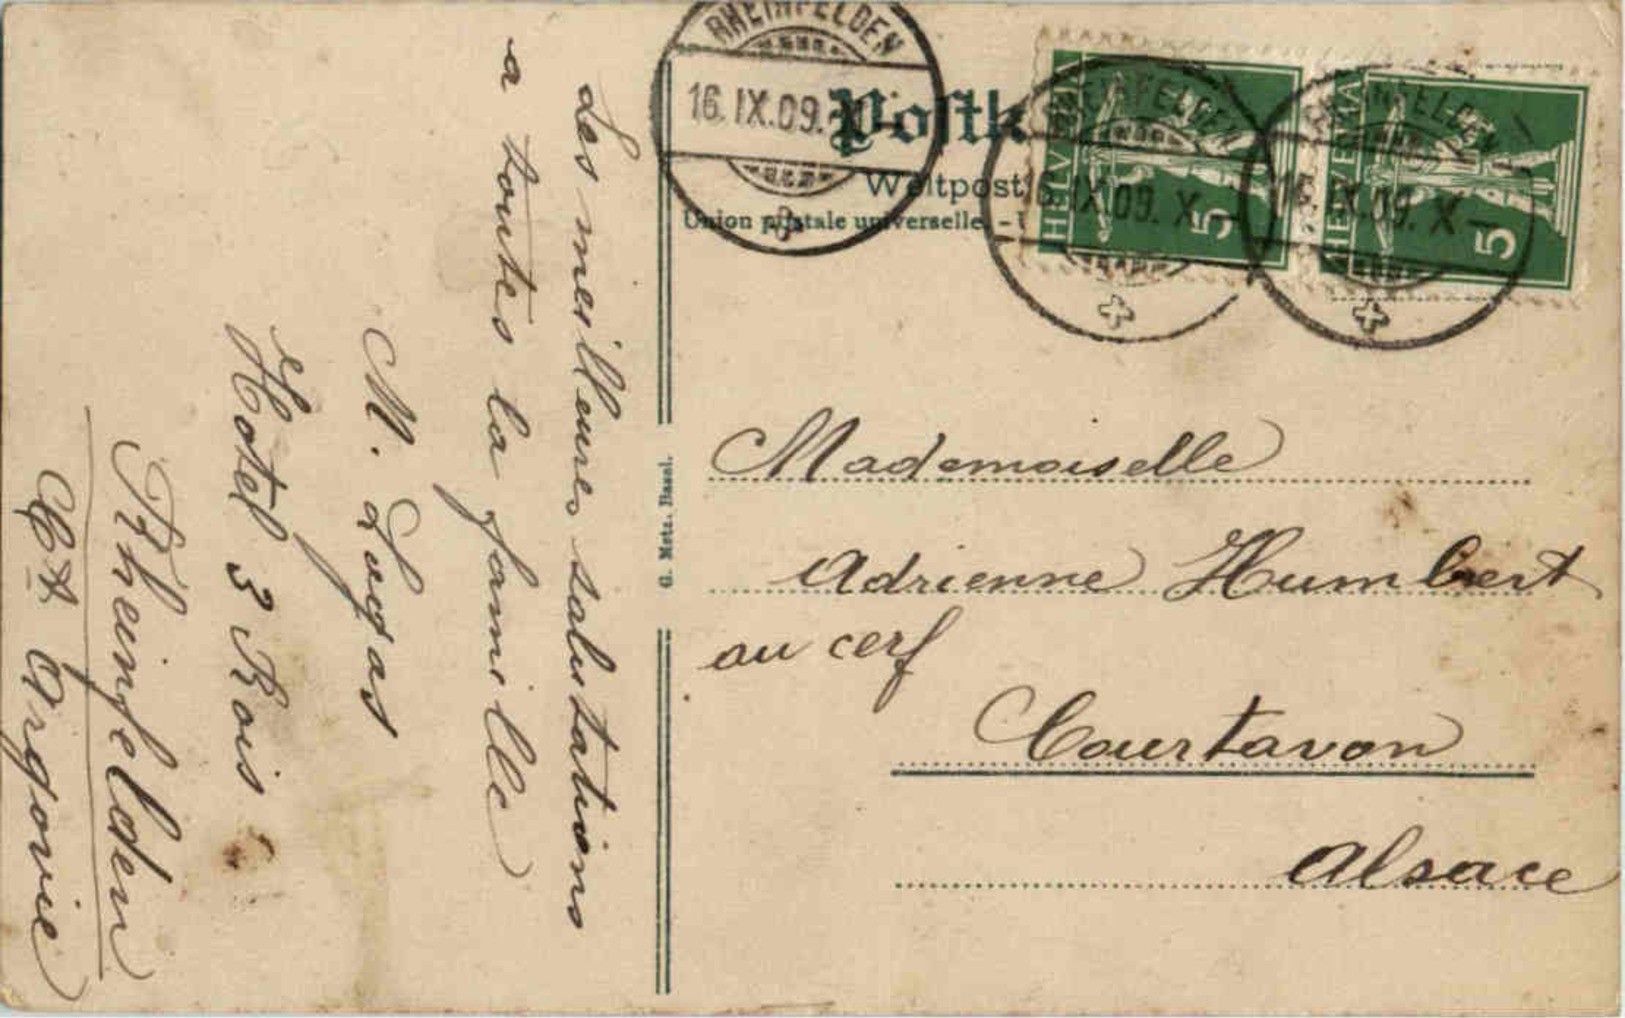 Les meilleures salutations
a toutes la famille
M.
Hotel 3 Rois
Rheinfelden
Ct Argovie
G. Metz, Basel.
RHEINFELDEN
16.IX.09.
Postk
Weltpost
Union postale universelle. -
HELVETIA
5
RHEINFELDEN
16.IX.09. X-
HELVETIA
5
RHEINFELDEN
16.IX.09. X-
Mademoiselle
Adrienne Humbert
au cerf
Courtavon
Alsace